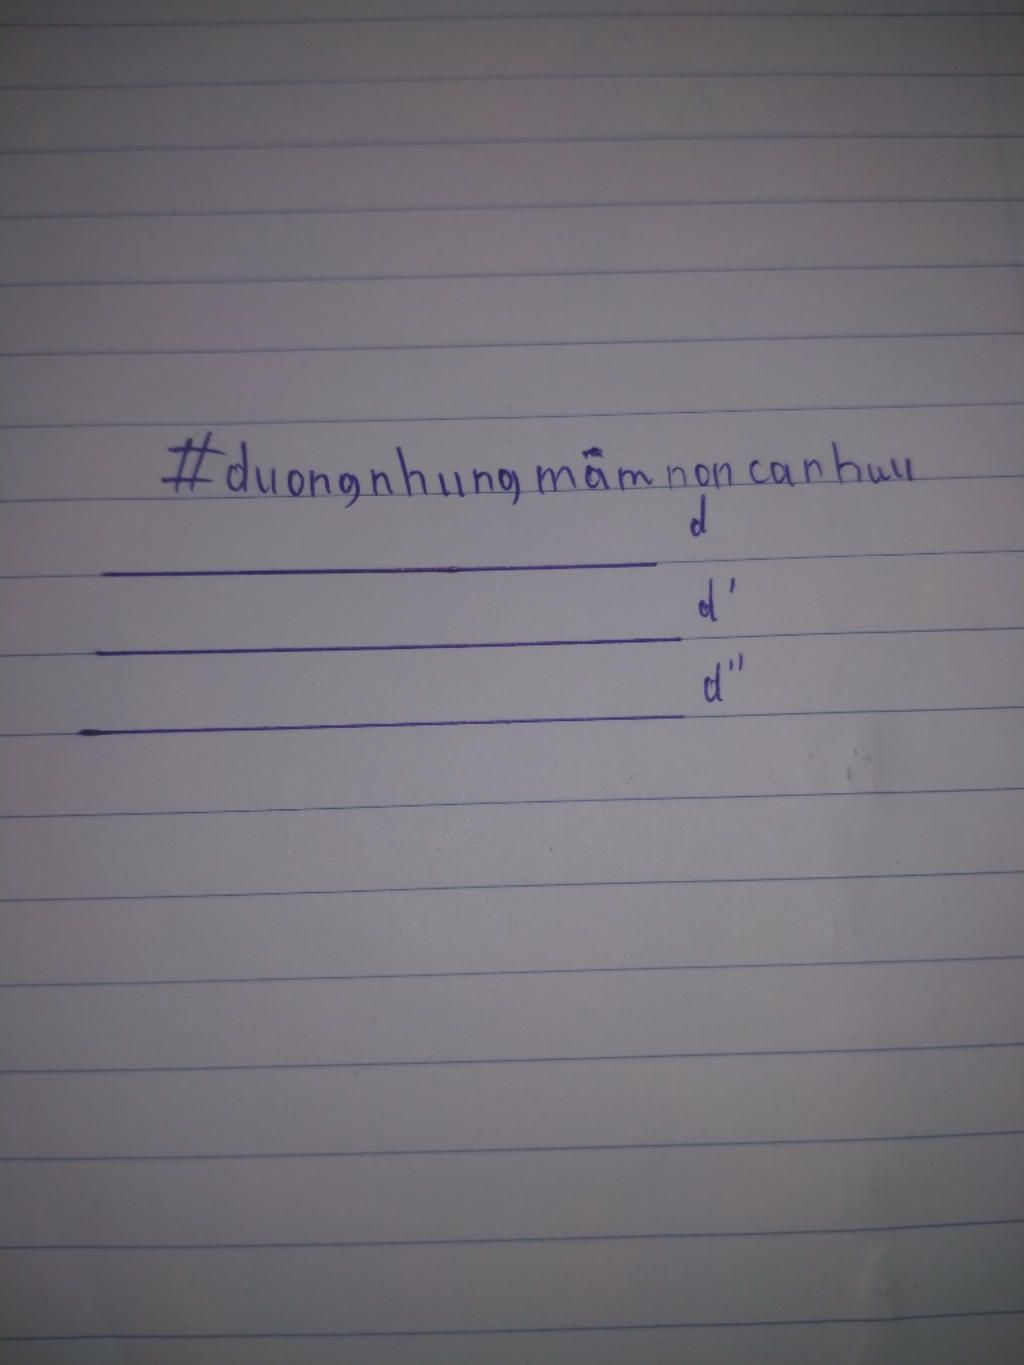 #duongnhungmầmnoncanhuu
d
d'
d"